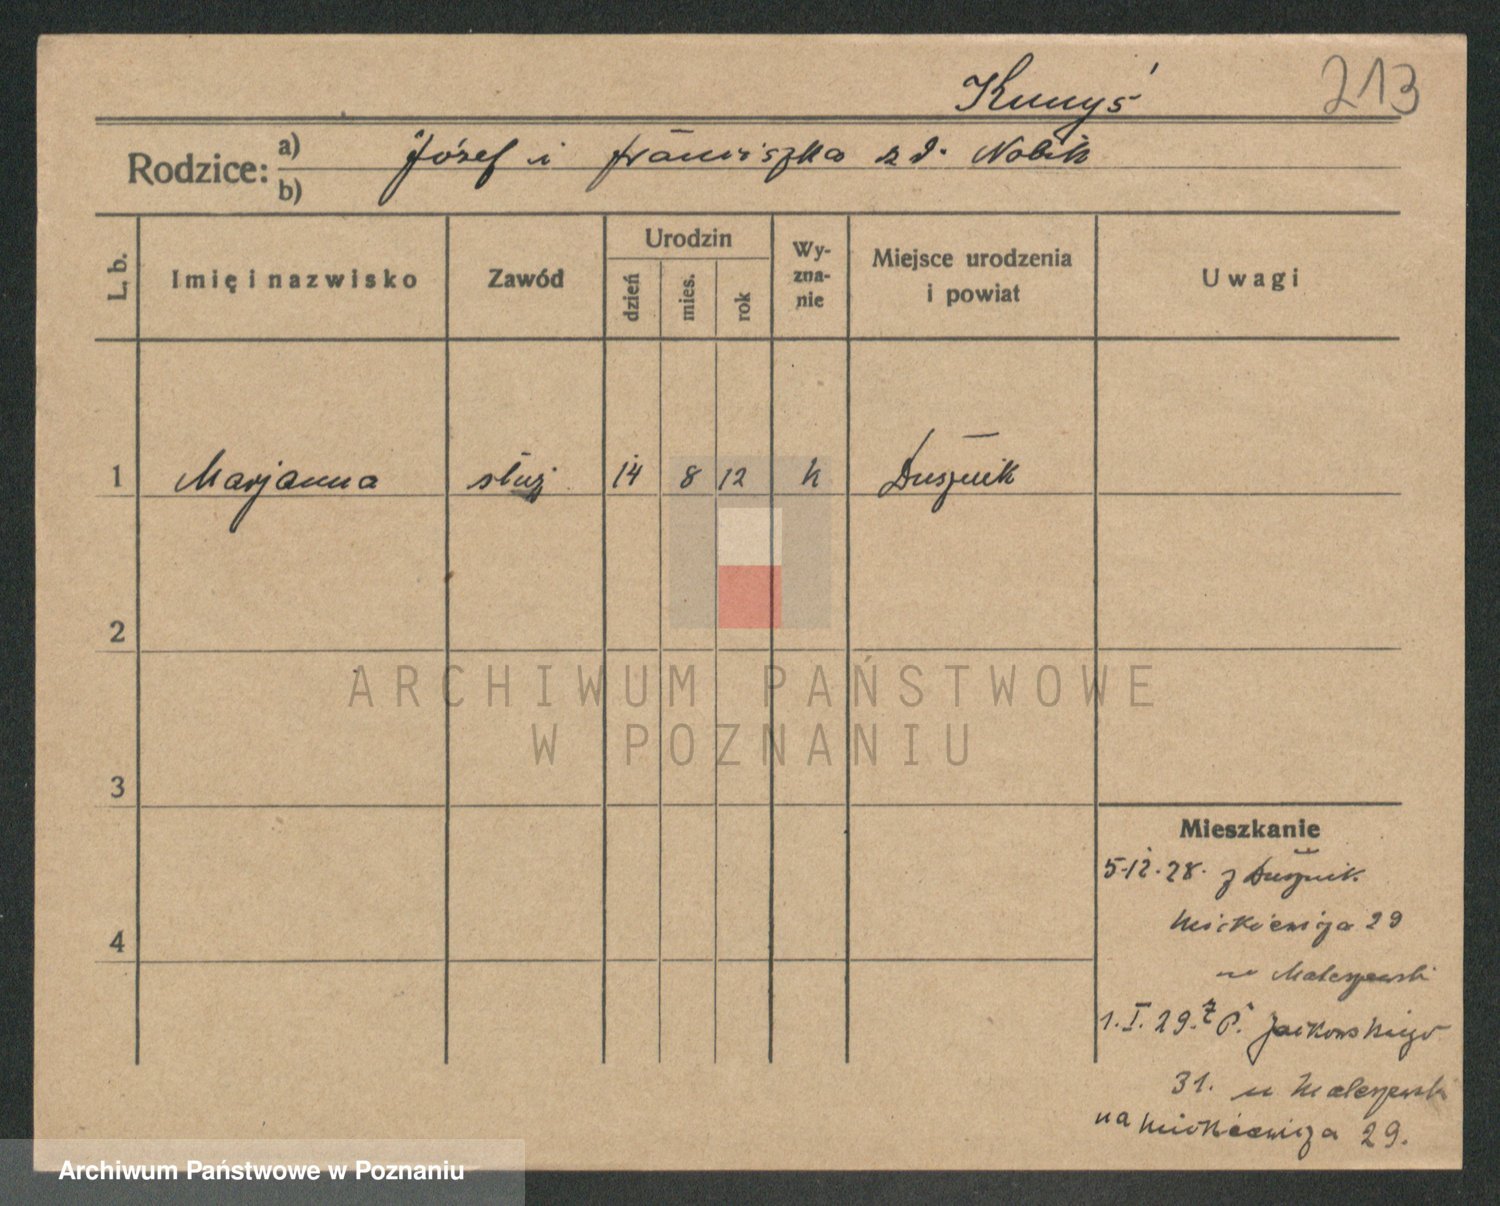 Kumyś 213
Rodzice: a) Józef i Franciszka z d. Nobik
b)
L. b. Imię i nazwisko Zawód Urodzin dzień mies. rok Wy-zna-nie Miejsce urodzenia i powiat Uwagi
1 Marjanna służ 14 8 12 k Dusznik
2
3
4
Mieszkanie
5.12.28. z Dusznik.
Mickiewicza 29
u Maleszewski
1.I.29. z P. Jackowskiego
31. u Maleszewski
na Mickiewicza 29.
ARCHIWUM PAŃSTWOWE
W POZNANIU
Archiwum Państwowe w Poznaniu